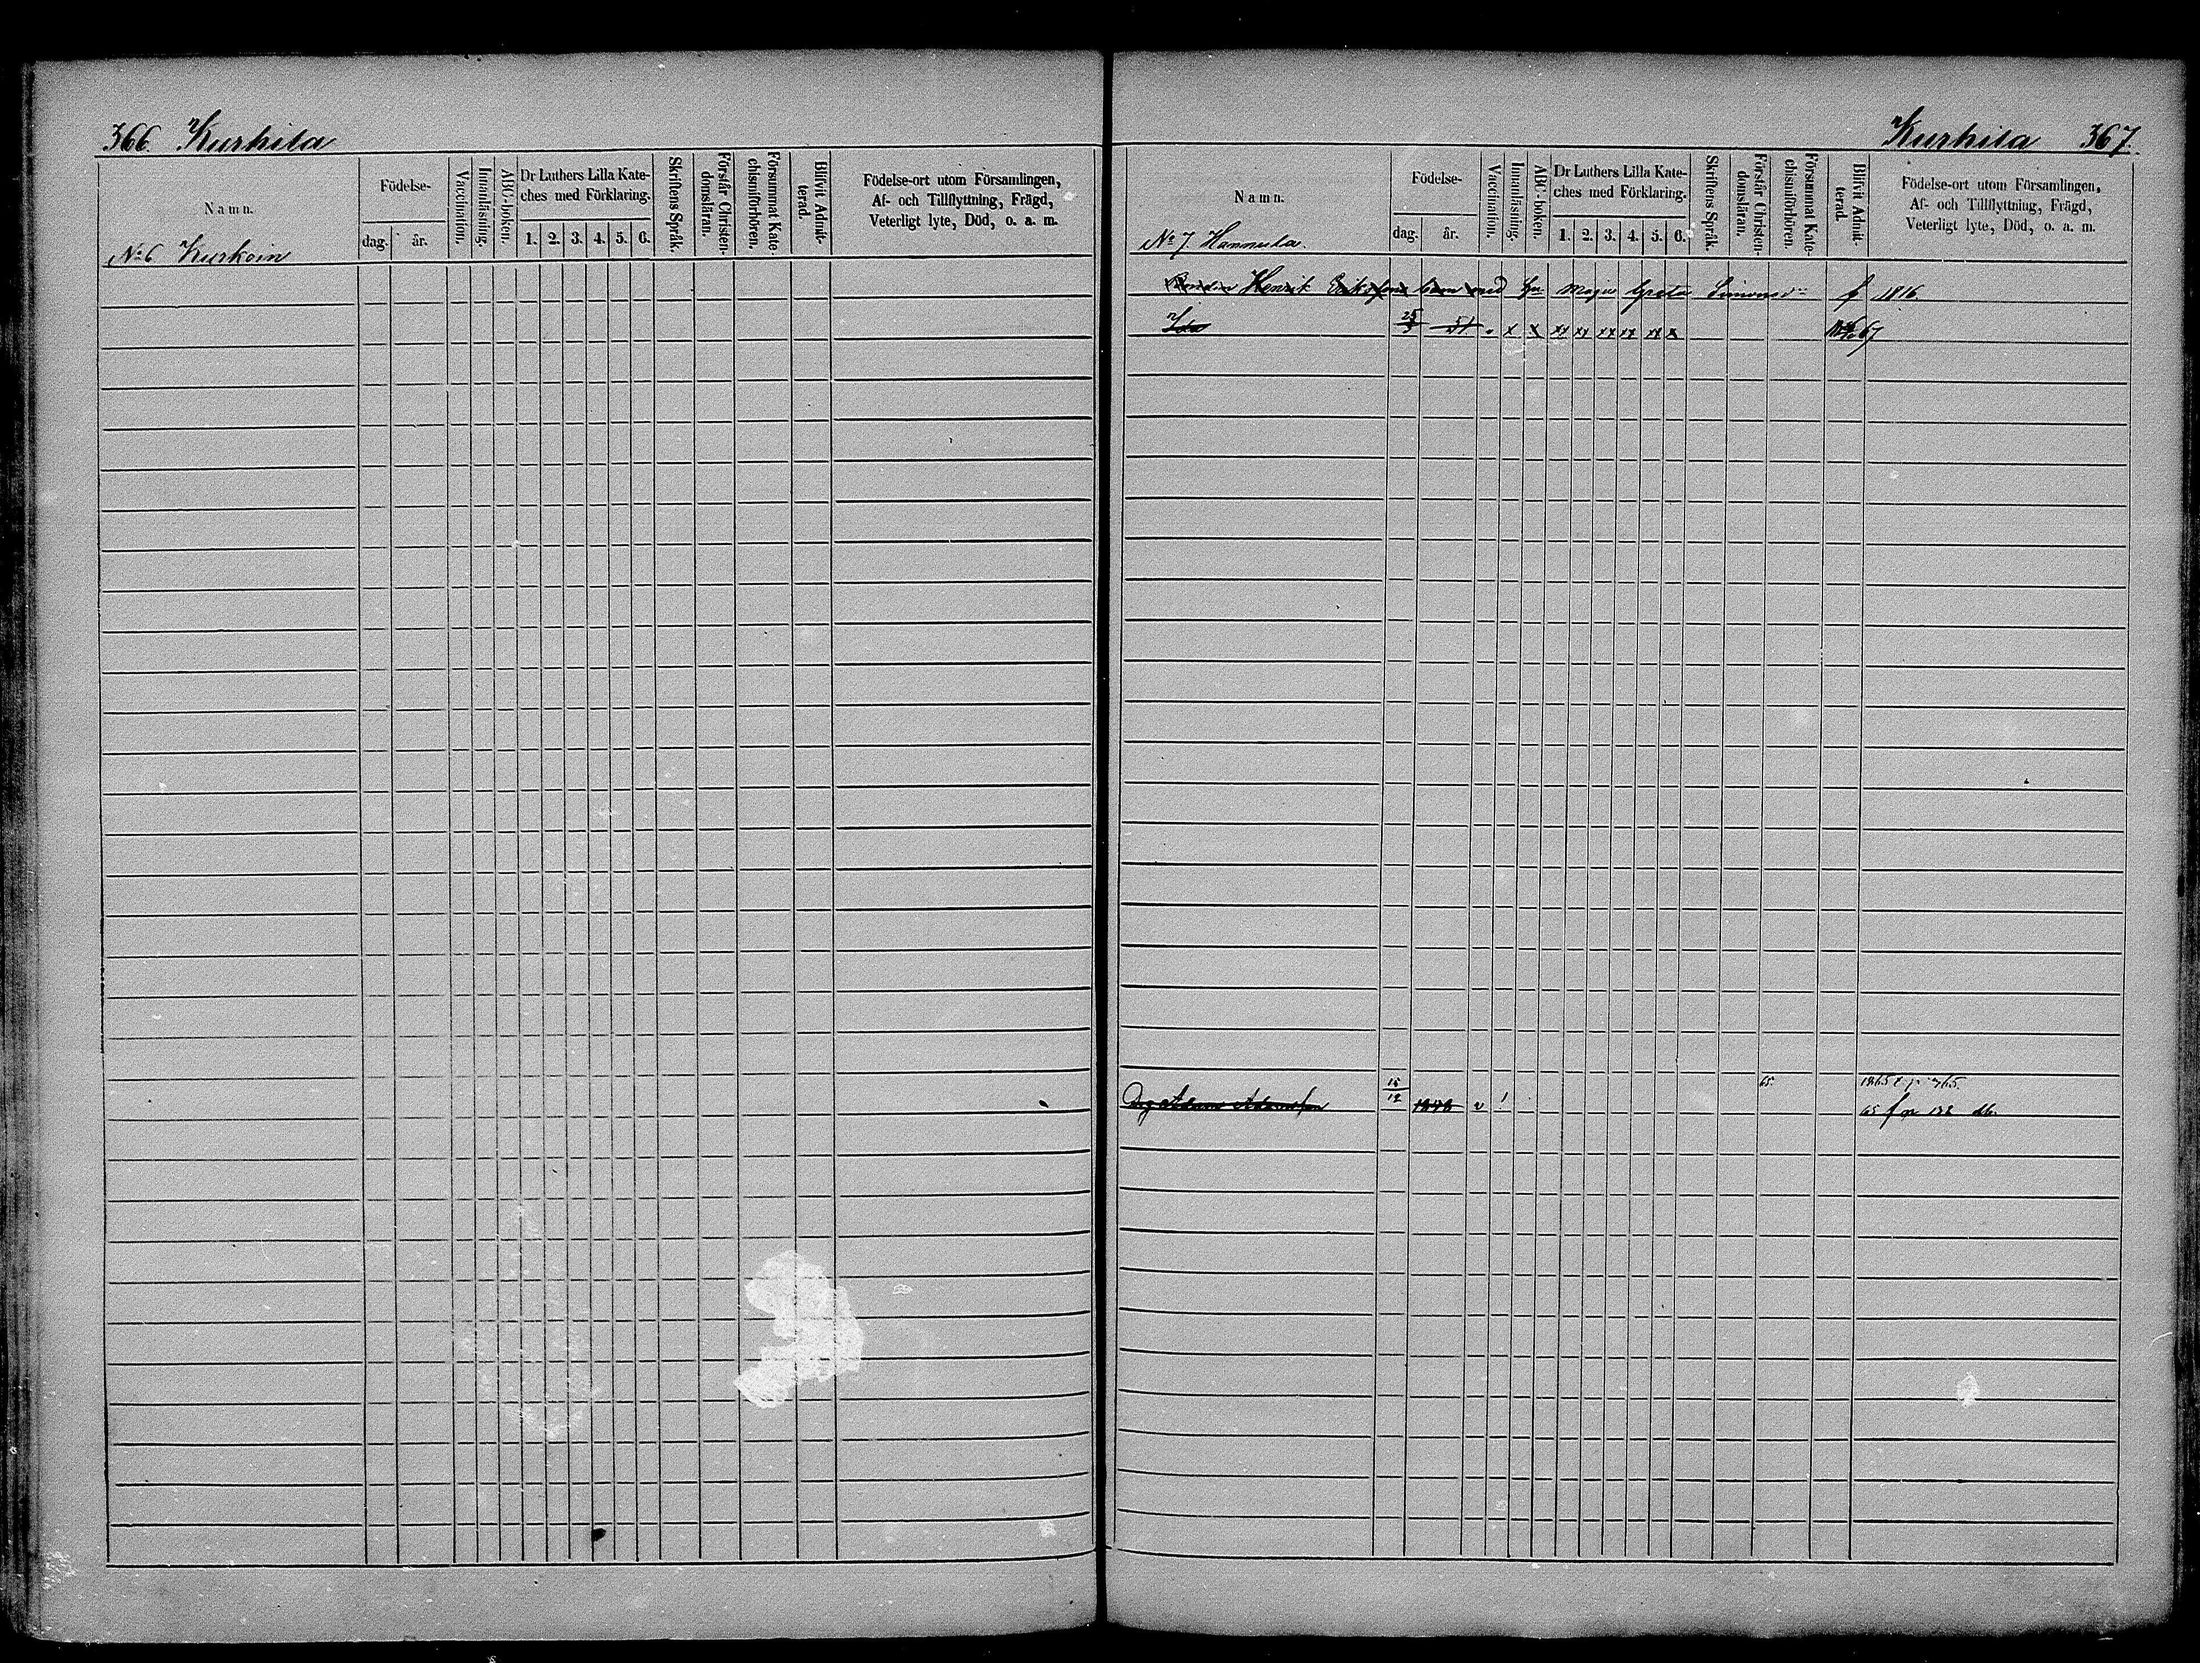 366 Kurkila
Namn.
Födelse-
dag. år.
Vaccination.
Innanläsning.
ABC-boken.
Dr Luthers Lilla Kate-
ches med Förklaring.
1. 2. 3. 4. 5. 6.
Skriftens Språk.
Förstår Christen-
domsläran.
Försummat Kate-
chismiförhören.
Blifvit Admit-
terad.
Födelse-ort utom Församlingen,
Af- och Tillflyttning, Frägd,
Veterligt lyte, Död, o. a. m.
No 6 Kurkoin
Kurkila 367.
Namn.
Födelse-
dag. år.
Vaccination.
Innanläsning.
ABC-boken.
Dr Luthers Lilla Kate-
ches med Förklaring.
1. 2. 3. 4. 5. 6.
Skriftens Språk.
Förstår Christen-
domsläran.
Försummat Kate-
chismiförhören.
Blifvit Admit-
terad.
Födelse-ort utom Församlingen,
Af- och Tillflyttning, Frägd,
Veterligt lyte, Död, o. a. m.
No 7 Hannula.
Bonden Henrik Eriksons barn med Greta Simonsdr f 1816.
Ida 25 51 x x xx xx xx xx xx x 67
Drg Adam Adamsson 15/12 1848 v ! 65. 1865 f p 365.
65 f p 122 db.